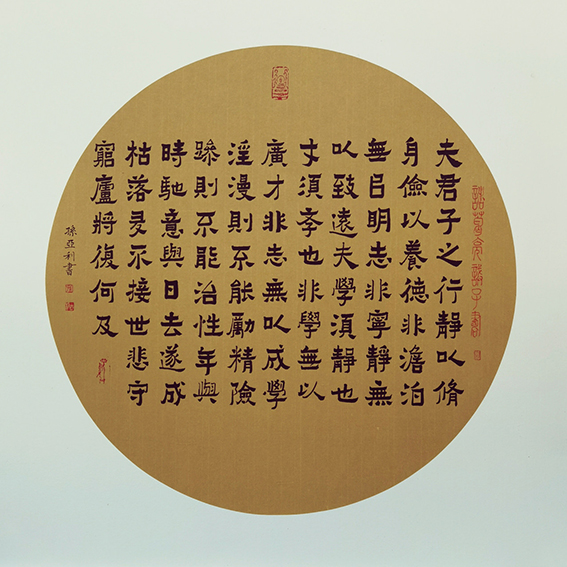 諸葛亮誡子書
夫君子之行靜以脩
身儉以養德非澹泊
無以明志非寧靜無
以致遠夫學須靜也
才須學也非學無以
廣才非志無以成學
淫漫則不能勵精險
躁則不能治性年與
時馳意與日去遂成
枯落多不接世悲守
窮廬將復何及
孫亞利書